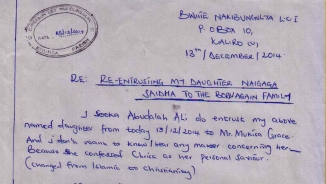 BWITE NAKIBUNGULYA L.C I
P.O BOX 10,
KALIRO (U)
13th/December/2014
RE: RE-ENTRUSTING MY DAUGHTER NAIGAGA
SAIDHA TO THE BORNAGAIN FAMILY
I Sooka Abudalah Ali do entrust my above
named daughter from today 13/12/2014 to Mr. Mukisa Grace.
And I don't want to know/hear any matter concerning her
Because she confessed Christ as her personal saviour.
(changed from Islamic to Christianity)